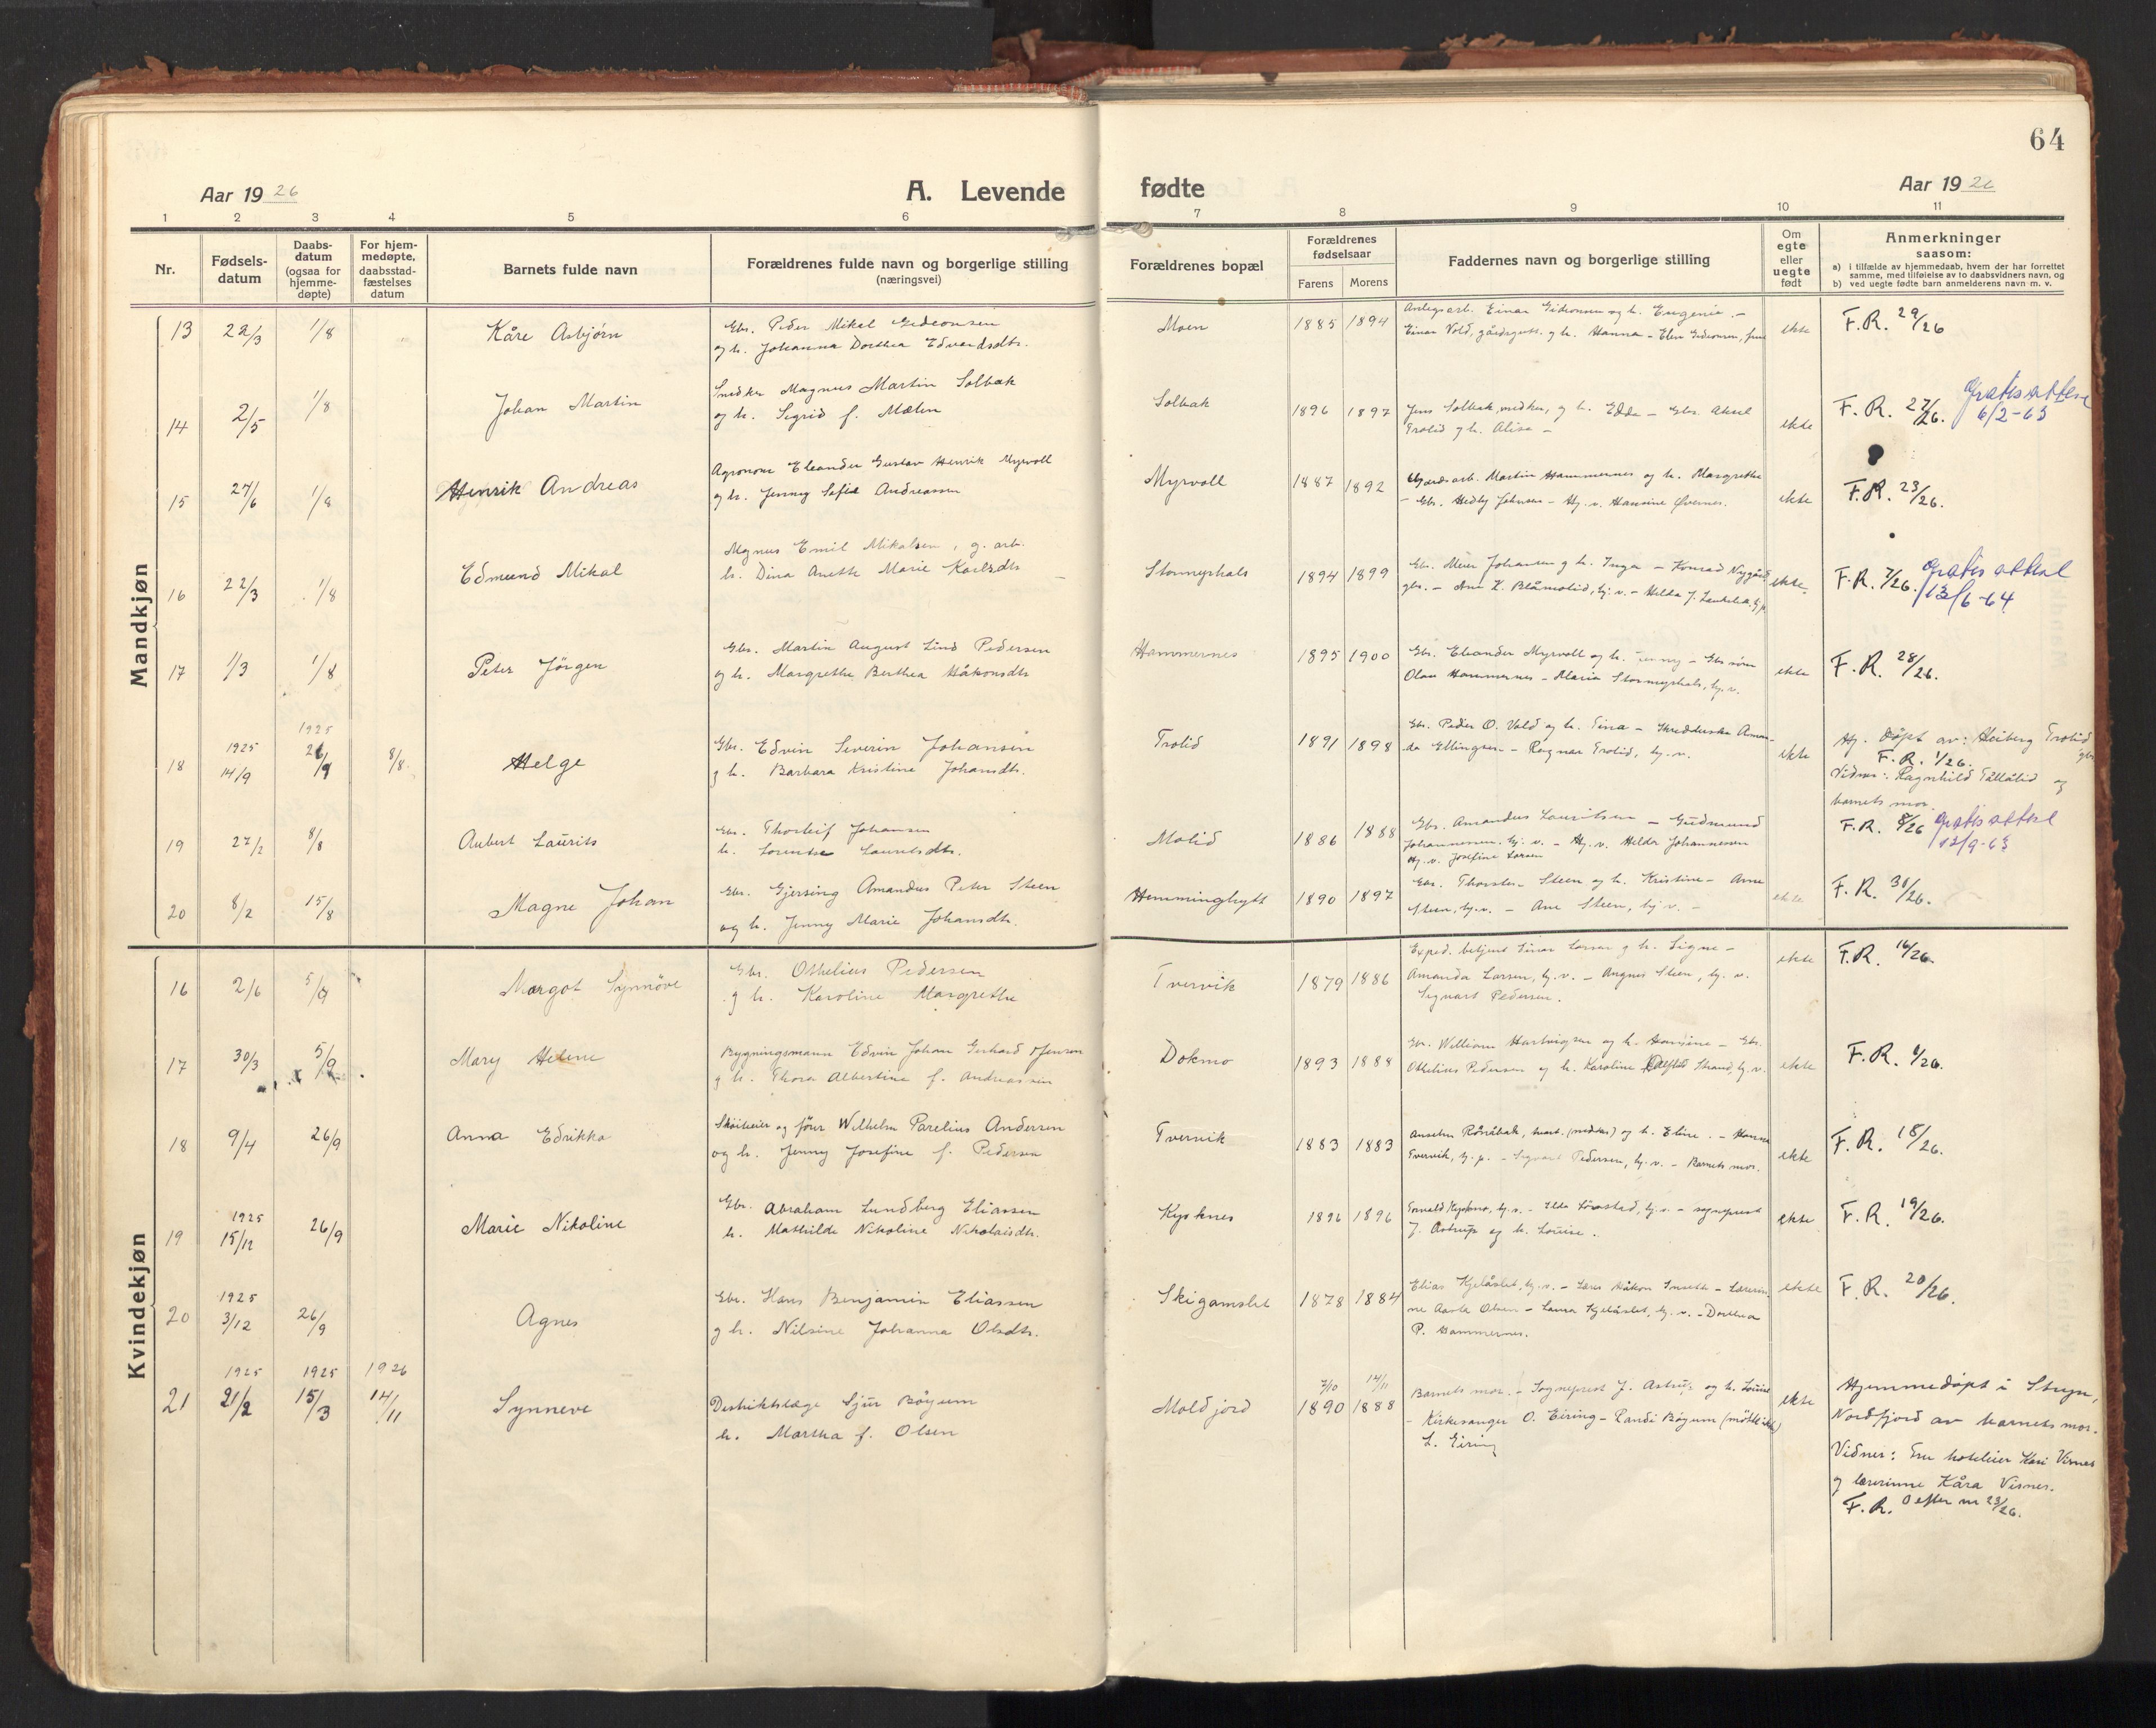 64
Aar 1926 A. Levende fødte Aar 1926
1 2 3 4 5 6 7 8 9 10 11
Nr.
Fødsels-
datum
Daabs-
datum
(ogsaa for
hjemme-
døpte)
For hjem-
medøpte,
daabsstad-
fæstelses
datum
Barnets fulde navn
Forældrenes fulde navn og borgerlige stilling
(næringsvei)
Forældrenes bopæl
Forældrenes
fødselsaar
Farens Morens
Faddernes navn og borgerlige stilling
Om
egte
eller
uegte
født
Anmerkninger
saasom:
a) i tilfælde av hjemmedaab, hvem der har forrettet
samme, med tilføielse av to daabsvidners navn, og
b) ved uegte fødte barn anmelderens navn m. v.
Mandkjøn
13 22/3 1/8 Kåre Asbjørn
Gbr. Peder Mikal Gideonsen
og h. Johanna Dorthea Edvardsdtr.
Moen 1885 1894
Anlegsarb. Einar Gideonsen og h. Eugenie. -
Einar Vold, gårdsgutt og h. Hanna - Elen Gideonsen, frue
ekte F.R. 29/26
14 2/5 1/8 Johan Martin
Snedker Magnus Martin Solbak
og h. Sigrid f. Mælen
Solbak 1896 1897
Jens Solbak, snedker, og h. Edda - Gbr. Aksel
Trolid og h. Alisa -
ekte F.R. 27/26. Gratis attest
6/2-63
15 27/6 1/8 Henrik Andreas
Agronom Eleander Gustav Henrik Myrvoll
og h. Jenny Sofie Andreassen
Myrvoll 1887 1892
Gårdsarb. Martin Hammernes og h. Margrethe
- Gbr. Hedly Johnsen - Hj. v. Hansine Øvernes.
ekte F.R. 23/26.
16 22/3 1/8 Edmund Mikal
Magnus Emil Mikalsen, g. arb.
h. Dina Anette Marie Karlsdtr
Stormyrhals 1894 1899
Gbr. Meier Johansen og h. Inga - Konrad Nygård
gbr. - Ane K. Blåmolid, hj. v. - Hilda J.
ekte. F.R. 7/26. Gratis attest
13/6-64
17 1/3 1/8 Peter Jörgen
Gbr. Martin August Lind Pedersen
og h. Margrethe Berthea Håkonsdtr
Hammernes 1895 1900
Gbr. Eleander Myrvoll og h. Jenny - Gbr. sönn
Olav Hammernes - Maria Stormyrhals, hj. v.
ekte F.R. 28/26.
18 1925 14/9 1925 26/9 8/8. Helge
Gbr. Edvin Severin Johansen
g h. Barbara Kristine Johansdtr.
Trolid 1891 1898
Gbr. Peder O. Vold og h. Tina - Skredderske Aman-
da Ellingsen - Ragnar Trolid, hj. v.
ekte
Hj. döpt av: Heiberg Trolid
gbr
F.R. 1/26.
Vidner: Ragnhild Tållålid og
barnets mor.
19 27/2 8/8 Aubert Laurits
Gbr. Thorleif Johansen
h. Lorentse Lauritsdtr.
Molid 1886 1888
Gbr. Amandus Lauritsen - Gudmund
Johannessen, hj. v. - Hj. v. Hilda Johannessen
Hj. v. Josefine Larsen
F.R. 8/26 Gratis attest
12/9-63
20 8/2 15/8 Magne Johan
Gbr. Gjersing Amandus Peter Steen
og h. Jenny Marie Johansdtr.
Hemminghytt 1890 1897
Gbr. Thorster Steen og h. Kristine - Arne
Steen, hj. v. - Ane Steen, hj. v. -
ekte F.R. 30/26.
Kvindekjøn
16 2/6 5/9 Margot Synnöve
Gbr. Othelius Pedersen
g h. Karoline Margrethe
Tvervik 1879 1886
Exped. betjent Einar Larsen g h. Signe -
Amanda Larsen, hj. v. - Angnes Steen, hj. v.
Sigvart Pedersen.
ekte F.R. 16/26.
17 30/3 5/9 Mary Helene
Bygningsmann Edvin Johan Gerhard Jensen
g h. Thora Albertine f. Andreassen
Dokmo 1893 1888
Gbr. William Hartvigsen og h. Hansine - Gbr.
Othelius Pedersen og h. Karoline Strand, hj. v.
ekte F.R. 6/26.
18 9/4 26/9 Anna Edrikka
Skoiteeier og förer Wilhelm Parelius Andersen
og h. Jenny Josefine f. Pedersen
Tvervik 1883 1883
Anselm Rönåbak, havb. (snedker) og h. Eline. - Hanna
Tvervik, hj. p. - Sigvart Pedersen, hj. v. - Barnets mor.
ekte F.R. 18/26.
19 1925 15/12 26/9 Marie Nikoline
Gbr. Abraham Lundberg Eliassen
h. Mathilde Nikoline Nikolaisdtr.
Kysknes 1896 1896
hj. v. - hj. v. - sogneprest
J. Astrup og h. Louise.
ekte F.R. 19/26.
20 1925 3/12 26/9 Agnes
Gbr. Hans Benjamin Eliassen
g h. Nilsine Johanna Olsdtr.
Skigamslet 1878 1884
Elias Kjelåslet, hj. v. - Lærer Håkon - Lærerin-
ne Aasta Olsen - Laura Kjelåslet, hj. v. - Dorthea
P. Hammernes.
ekte F.R. 20/26.
21 1925 21/2 1925 15/3 1926 14/11 Synneve
Distriktslæge Sjur Böyum
h. Martha f. Olsen
Moldjord 7/10 1890 14/11 1888
Barnets mor. - Sogneprest J. Astrup og h. Louise
- Kirkesanger O. Eiring - Randi Böyum (mötte ikke)
L. Eiring
ekte
Hjemmedöpt i Stryn,
Nordfjord av barnets mor.
Vidner: Fru hoteleier Kari Visnes
g lærerinne Kåra Visnes.
F.R. 0 efter nr 23/26.